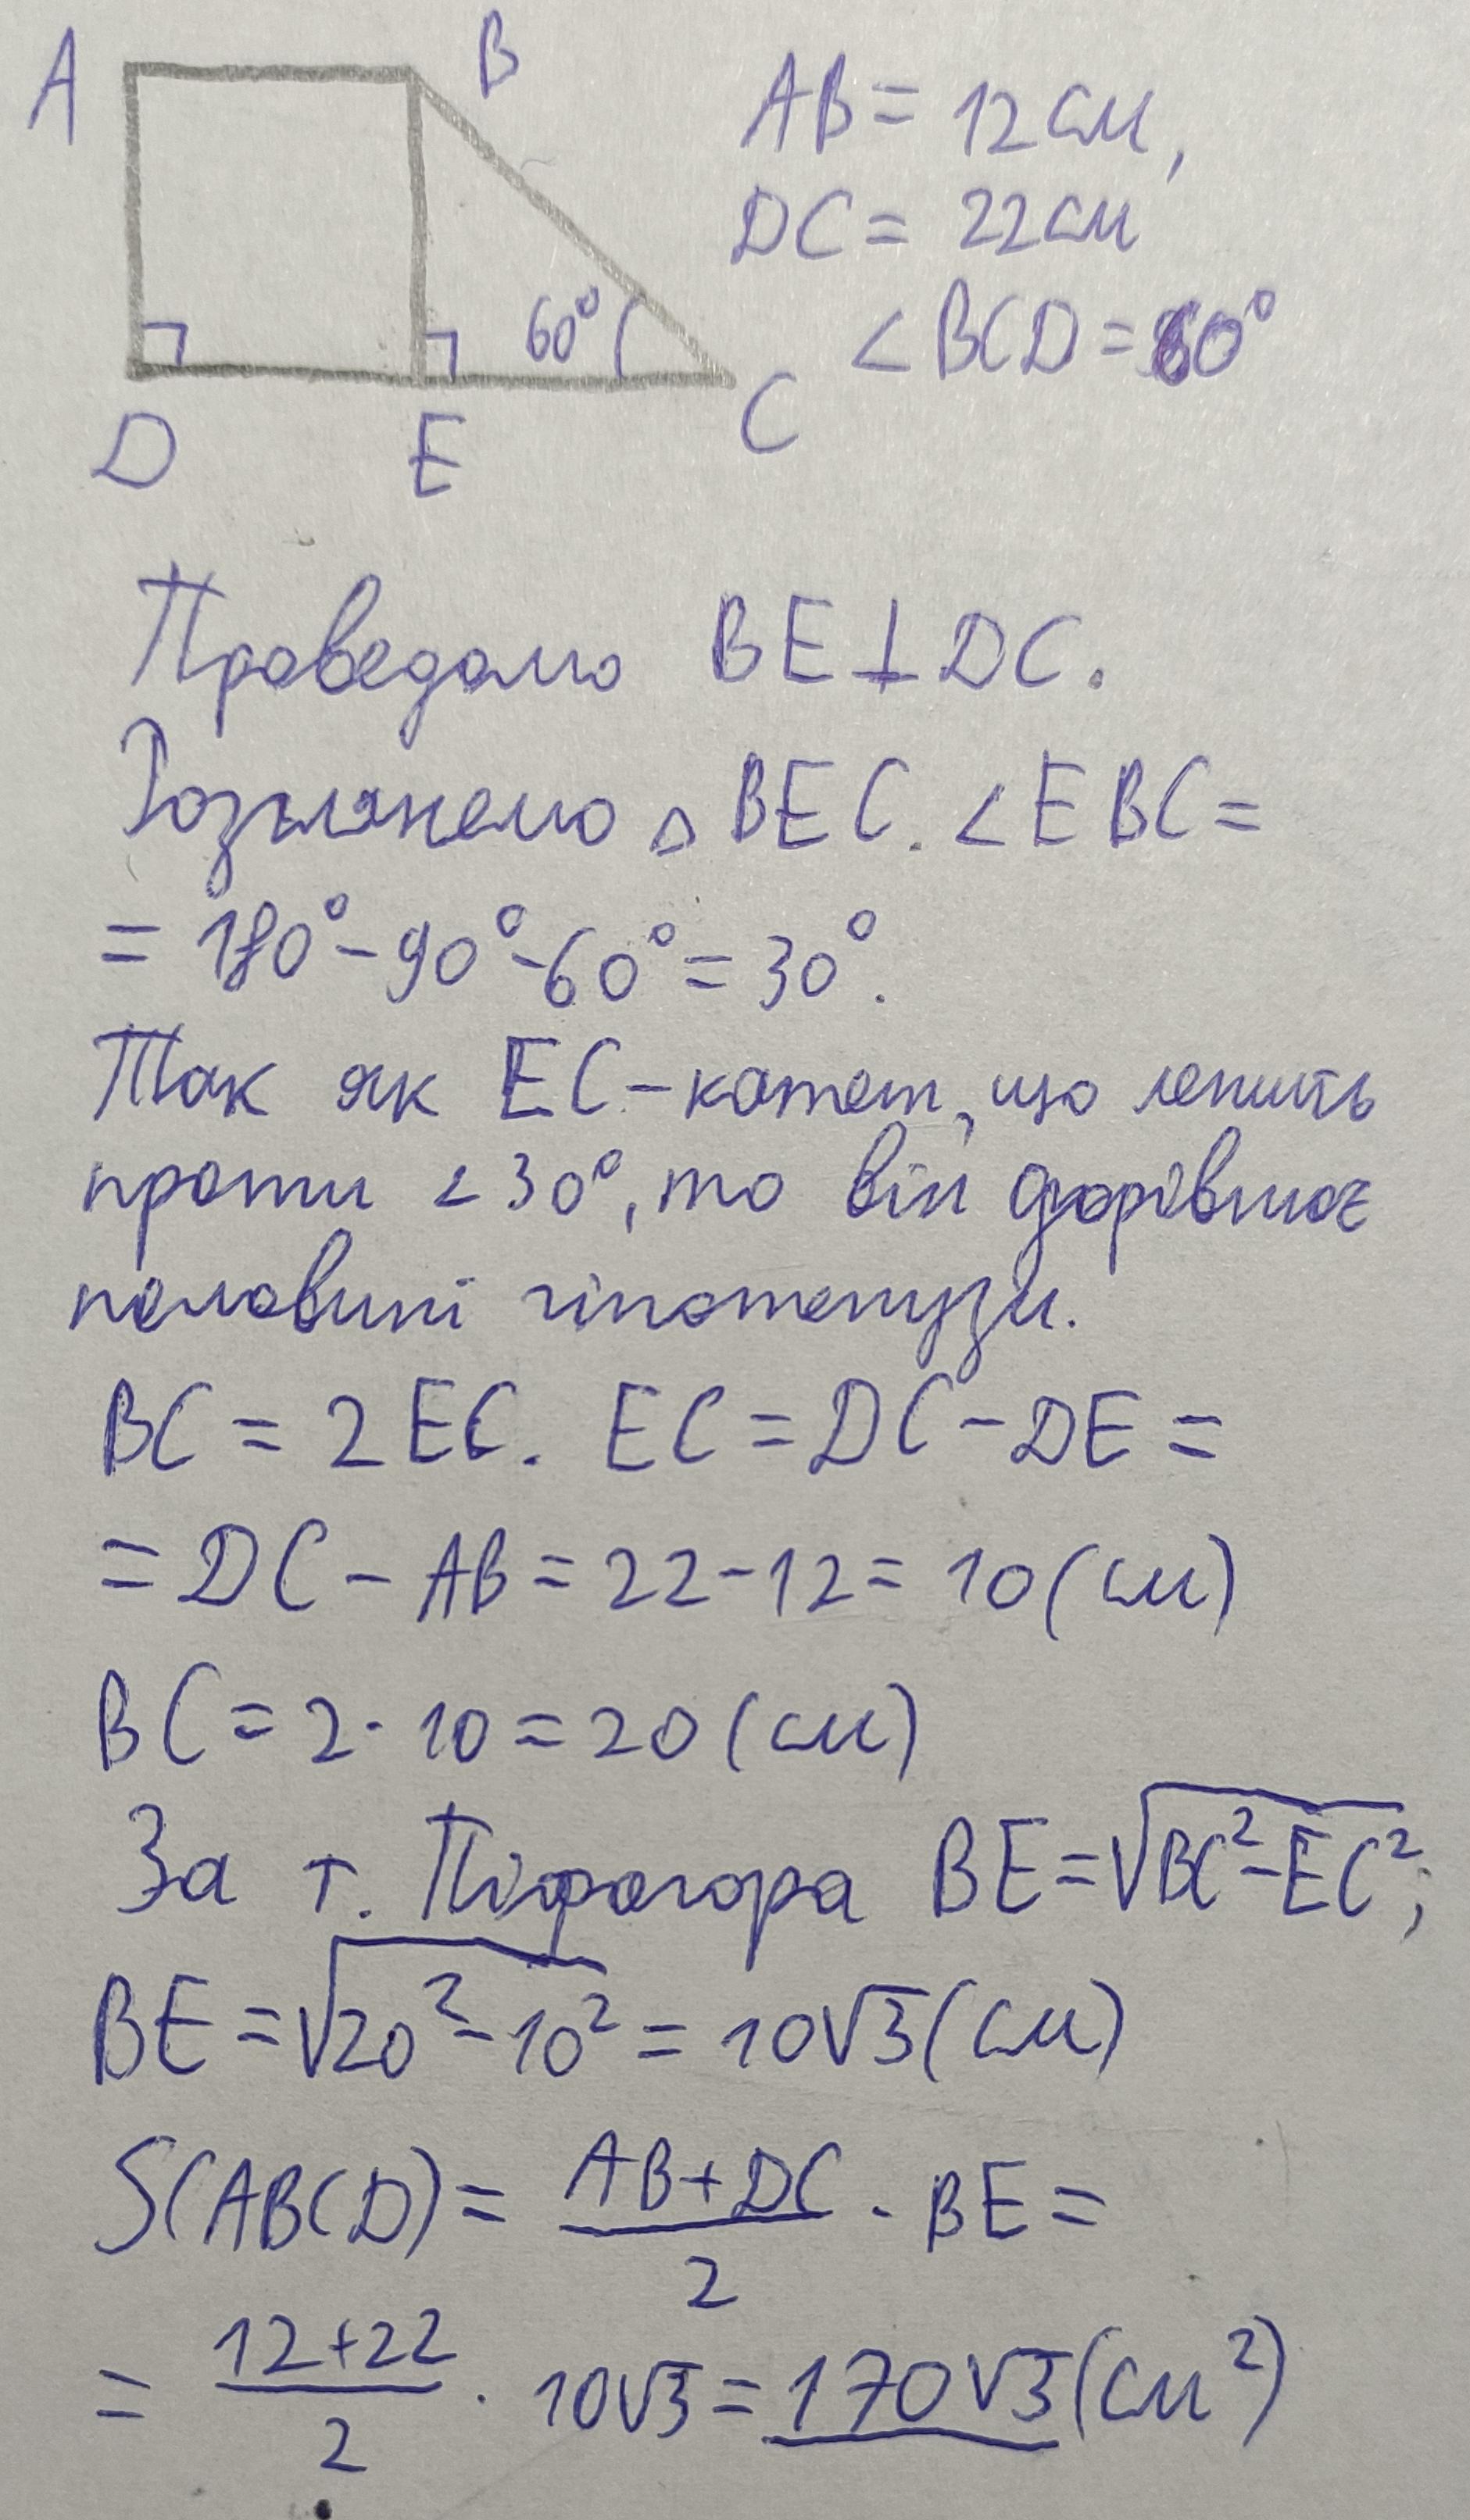 A
B
AB = 12 см,
DC = 22 см
60°
∠BCD = 60°
D
E
C
Проведемо BE ⊥ DC.
Розглянемо △ BEC. ∠EBC =
= 180° - 90° - 60° = 30°.
Так як EC - катет, що лежить
проти ∠30°, то він дорівнює
половині гіпотенузи.
BC = 2EC. EC = DC - DE =
= DC - AB = 22 - 12 = 10 (см)
BC = 2 · 10 = 20 (см)
За т. Піфагора BE = √BC² - EC²;
BE = √20² - 10² = 10√3 (см)
S(ABCD) = AB + DC / 2 · BE =
= 12 + 22 / 2 · 10√3 = 170√3 (см²)